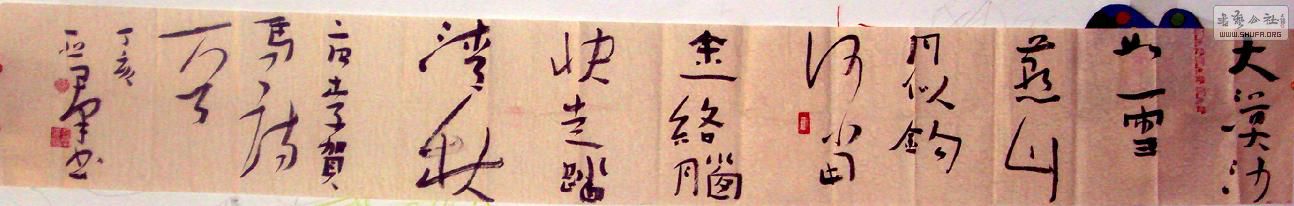 大漠沙
如雪
燕山
月似鈎
何當
金絡腦
快走踏
清秋
唐李賀
馬詩
丁亥
書
书艺公社
WWW.SHUFA.ORG